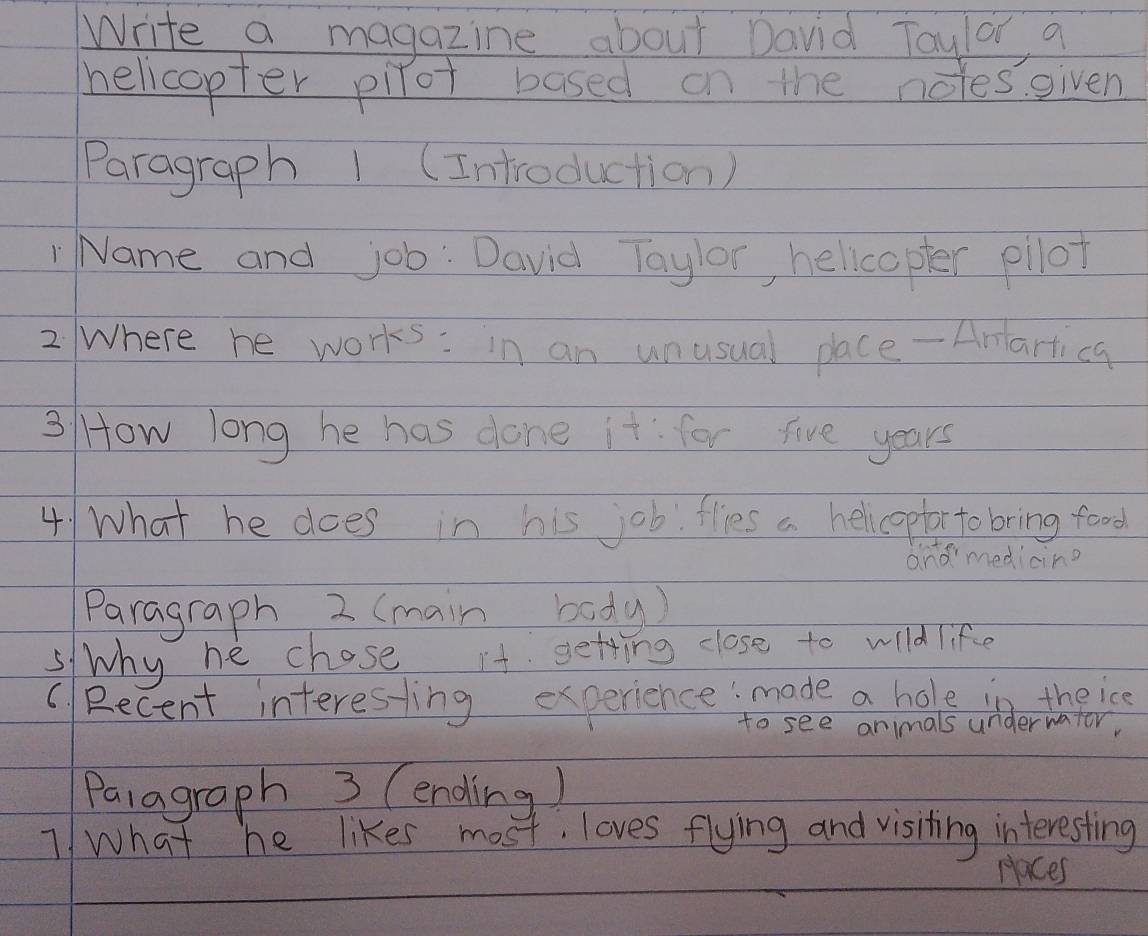 Write a magazine about David Taylor, a
helicopter pilot based on the notes given
Paragraph 1 (Introduction)
1. Name and job: David Taylor, helicopter pilot
2. Where he works: in an unusual place - Antartica
3. How long he has done it: for five years
4. What he does in his job: flies a helicoptor to bring food
and medicine
Paragraph 2 (main body)
5. Why he chose it. getting close to wildlife
6. Recent interesting experience: made a hole in the ice
to see animals underwater.
Paragraph 3 (ending)
7. What he likes most. loves flying and visiting interesting
places